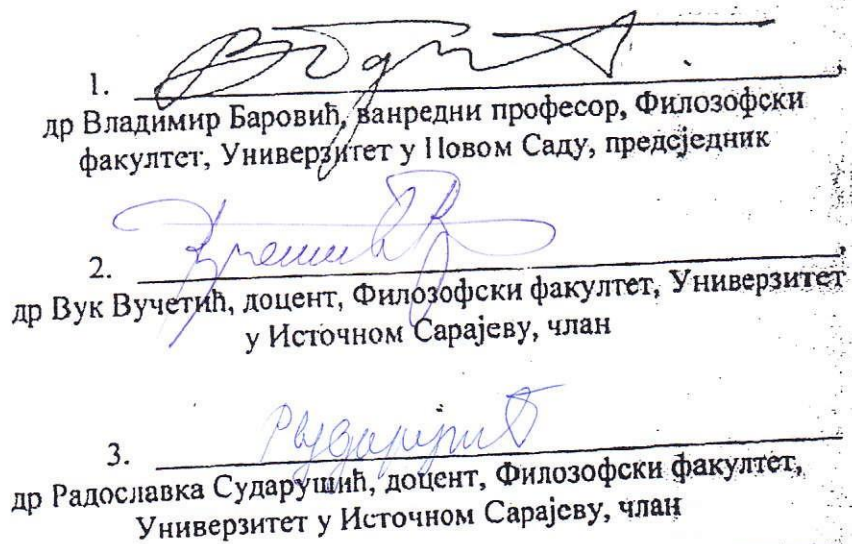 1.
др Владимир Баровић, ванредни професор, Филозофски
факултет, Универзитет у Новом Саду, предсједник
2.
др Вук Вучетић, доцент, Филозофски факултет, Универзитет
у Источном Сарајеву, члан
3.
др Радославка Сударушић, доцент, Филозофски факултет,
Универзитет у Источном Сарајеву, члан